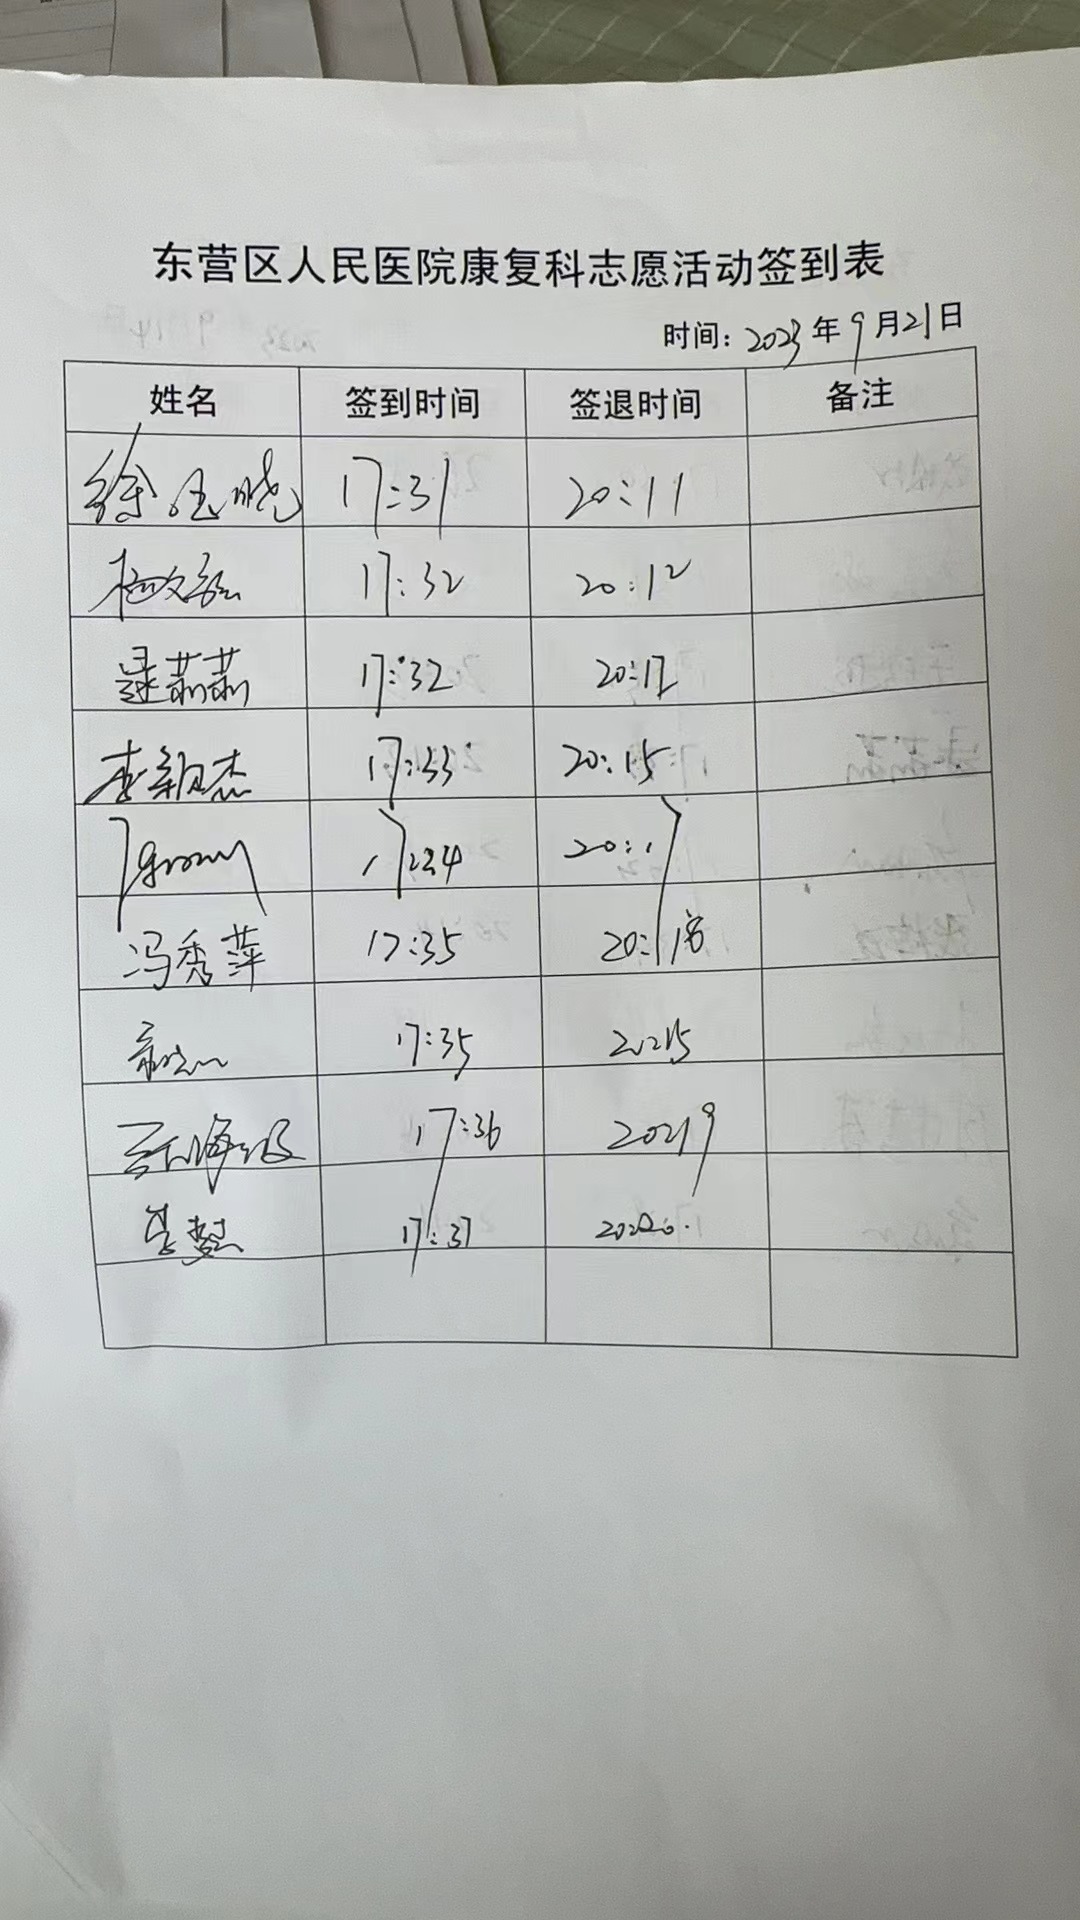 东营区人民医院康复科志愿活动签到表
时间：2023年9月21日
姓名 签到时间 签退时间 备注
徐玉晓 17:31 20:11
17:32 20:12
逯莉莉 17:32 20:12
李新杰 17:33 20:15
17:34 20:17
冯秀萍 17:35 20:18
17:35 20:15
17:36 20:19
17:37 20:20.